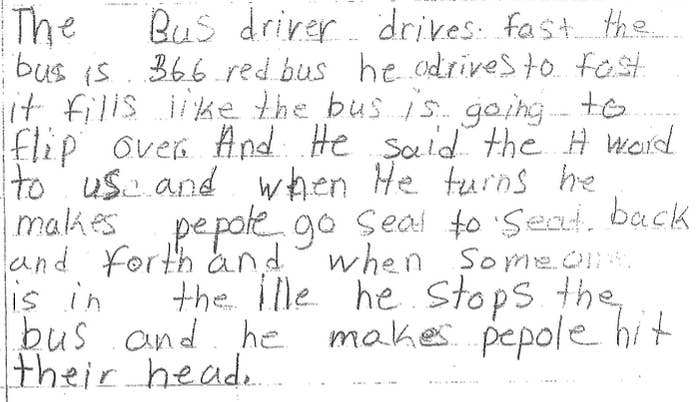 The Bus driver drives. fast the
bus is 366 red bus he adrives to fast
it fills like the bus is going to
flip over. And He said the H word
to us and when He turns he
makes pepole go Seat to Seat. back
and forth and when Someone
is in the ille he Stops the
bus and he makes pepole hit
their head.